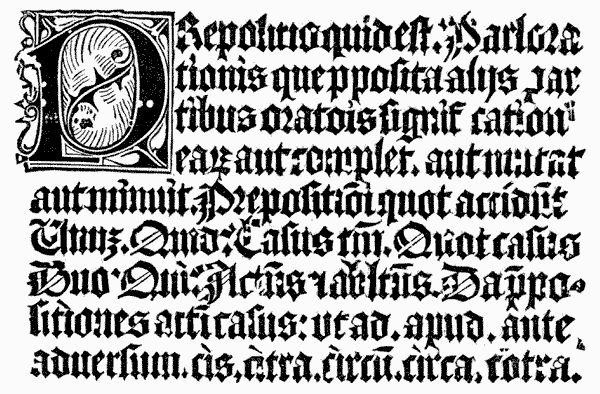 PRepositio quid est. Pars ora
tionis que ꝓposita alijs par
tibus oratōis signif catōnē
earꝫ aut complet. aut mutat
aut minuit. Prepositiōi quot accidūt
Unuꝫ. Quid: Casus tm̄. Quot casus
Duo. Qui: Actūs ⁊ ablatūs. Da p̄po-
sitiones accti casus: ut ad. apud. ante
aduersum. cis. citra. circū. circa. cōtra.